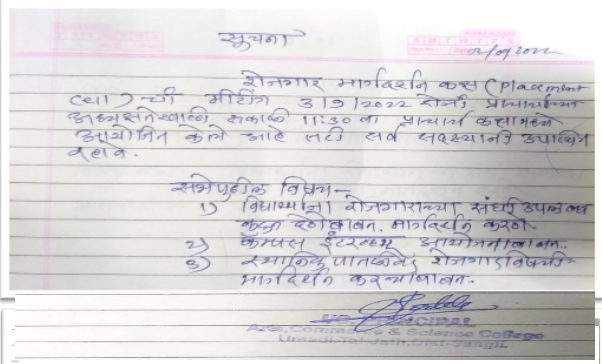 सूचना
2/9/2022
रोजगार मार्गदर्शन कक्ष (Placement
cell) ची मीटिंग 3/9/2022 रोजी प्राचार्यांच्या
अध्यक्षतेखाली सकाळी 11:30 वा प्राचार्य कक्षामध्ये
आयोजित केली आहे तरी सर्व सदस्यांनी उपस्थित
रहावे.
सभेपुढील विषय-
1) विद्यार्थ्यांना रोजगाराच्या संधी उपलब्ध
करून देणेबाबत. मार्गदर्शन करणे
2) कॅम्पस इंटरव्ह्यू आयोजनाबाबत.
3) स्थानिक पातळीवर रोजगाराविषयी
मार्गदर्शन करण्याबाबत.
PRINCIPAL
Arts, Commerce & Science College
Umadi, Tal-Jath, Dist-Sangli